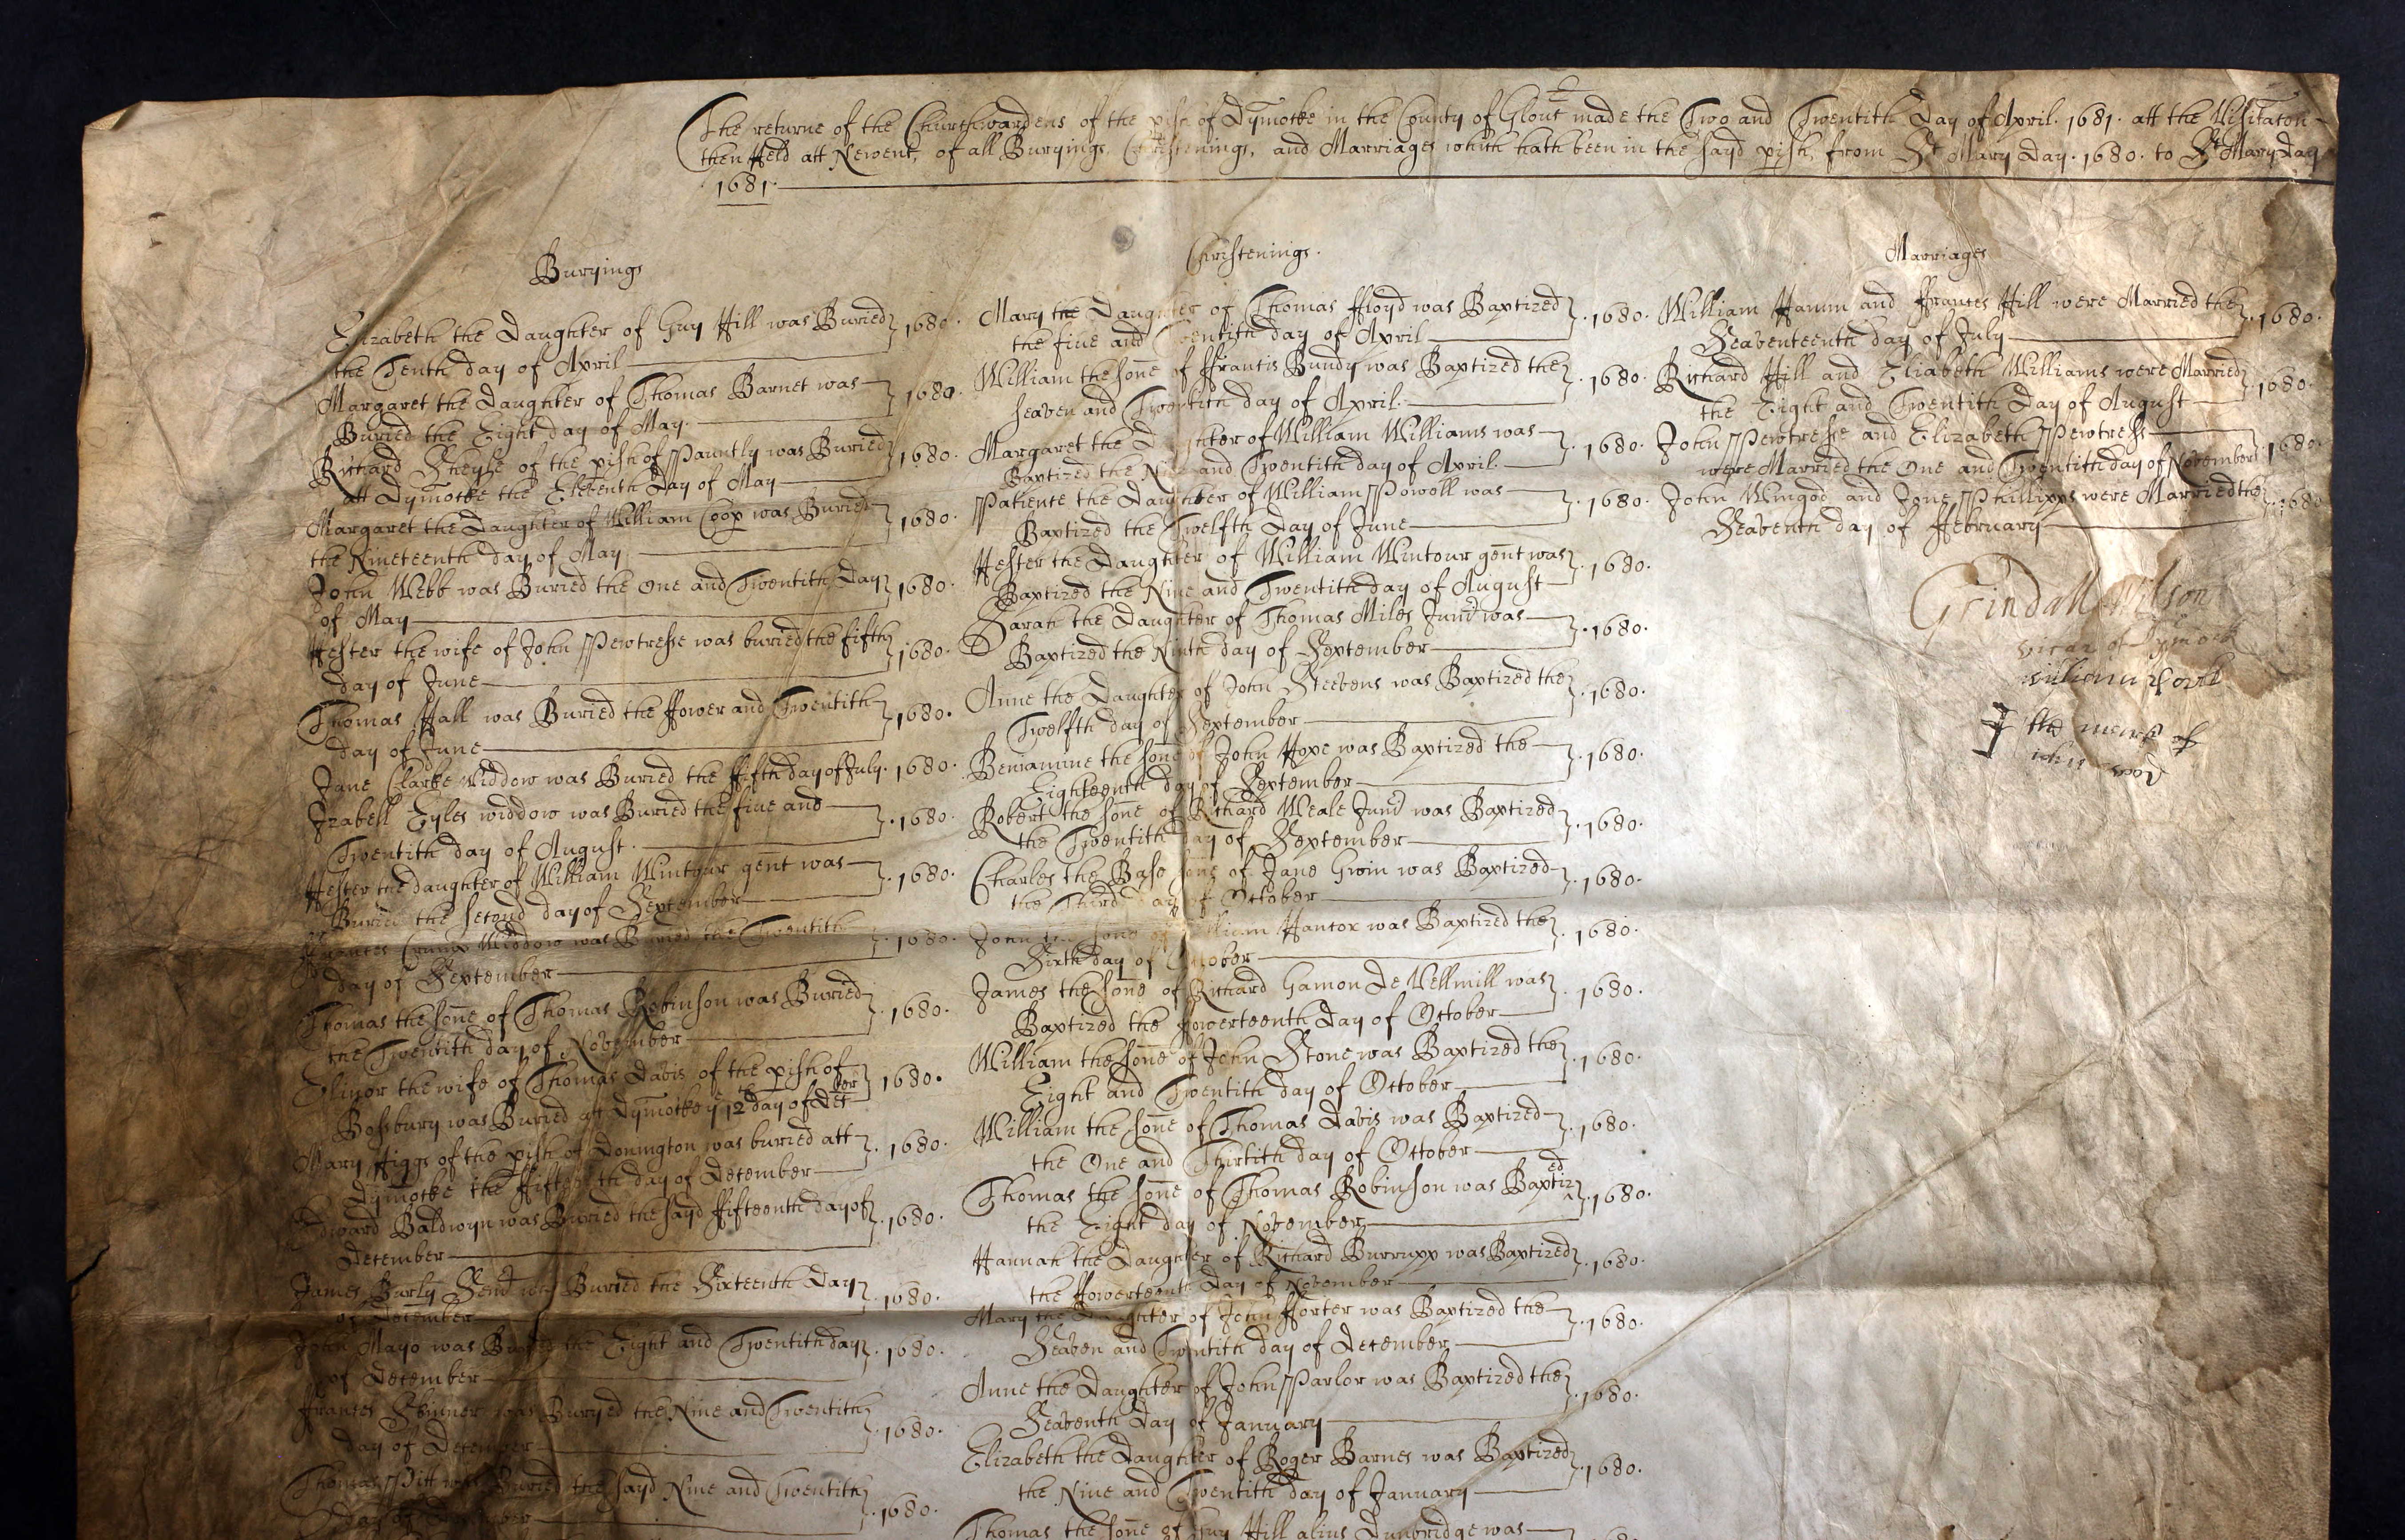 The returne of the Churchwardens of the pish of Dymocke in the County of Glouc made the Two and Twentith Day of April. 1681. att the Visitacon
then Held att Newent, of all Buryings, Christenings, and Marriages which hath been in the sayd pish, from St Mary Day. 1680. to St Mary Day
1681.
Buryings
Elizabeth the Daughter of Guy Hill was Buried
the Tenth day of April 1680.
Margaret the Daughter of Thomas Barnet was
Buried the Eight day of May. 1680.
Richard of the pish of Pauntly was Buried
att Dymocke the Eleventh Day of May 1680.
Margaret the Daughter of William Coop was Buried
the Nineteenth day of May. 1680.
John Webb was Buried the One and Twentith Day
of May 1680.
Hester the wife of John Pewtresse was buried the fifth
day of June 1680.
Thomas Hall was Buried the ffower and Twentith
day of June 1680.
Jane Clarke Widdow was Buried the ffifth day of July. 1680.
Izabell Eyles widdow was Buried the five and
Twentith day of August. 1680.
Hester the daughter of William Wintour gent was
Buried the second day of September 1680.
ffrances Crump Widdow was Buried the Twentith
day of September 1680.
Thomas the sone of Thomas Robinson was Buried
the Twentith day of November 1680.
Elinor the wife of Thomas Davis of the pish of
Bosbury was Buried att Dymocke ye 12th day of Decber 1680.
Mary Higgs of the pish of Donington was buried att
Dymocke the ffifteenth day of December 1680.
Edward Baldwyn was Buried the sayd ffifteenth day of
December 1680.
James Senr was Buried the Sixteenth Day
of December 1680.
John Mayo was Buried the Eight and Twentith day
of December 1680.
ffrances Skinner was Buryed the Nine and Twentith
day of December 1680.
Thomas Pitt was Buried the sayd Nine and Twentith
day of December 1680.
Christenings.
Mary the Daughter of Thomas ffloyd was Baptized
the five and Twentith day of April 1680.
William the sone of ffrancis Bundy was Baptized the
seaven and Twentith day of April. 1680.
Margaret the Daughter of William Williams was
Baptized the Nine and Twentith day of April. 1680.
Patience the Daughter of William Powell was
Baptized the Twelfth Day of June 1680.
Hester the Daughter of William Wintour gent was
Baptized the Nine and Twentith day of August 1680.
Sarah the Daughter of Thomas Miles Junr was
Baptized the Ninth day of September 1680.
Anne the Daughter of John Steevens was Baptized the
Twelfth day of September 1680.
Beniamine the sone of John Hope was Baptized the
Eighteenth day of September 1680.
Robert the sone of Richard Weale Junr was Baptized
the Twentith day of September 1680.
Charles the Base sone of Jane Gwin was Baptized
the Third Day of October 1680.
John the sone of William Hancox was Baptized the
Sixth day of October 1680.
James the sone of Richard Gamon De Vellmill was
Baptized the ffowerteenth Day of October 1680.
William the sone of John Stone was Baptized the
Eight and Twentith day of October 1680.
William the sone of Thomas Davis was Baptized
the One and Thirtith day of October 1680.
Thomas the sone of Thomas Robinson was Baptized
the Eight day of November 1680.
Hannah the Daughter of Richard Burrupp was Baptized
the ffowerteenth Day of November 1680.
Mary the Daughter of John fforter was Baptized the
Seaven and Twentith day of December 1680.
Anne the Daughter of John Parlor was Baptized the
Seaventh Day of January 1680.
Elizabeth the Daughter of Roger Barnes was Baptized
the Nine and Twentith day of January 1680.
Thomas the sone of Guy Hill alius Dunbridge was
Marriages
William Hamm and ffrances Hill were Married the
Seaventeenth day of July 1680.
Richard Hill and Eliabeth Williams were Married
the Eight and Twentith Day of August 1680.
John Pewtresse and Elizabeth Pewtress
were Married the One and Twentith day of November 1680.
John Wingod and Jone Phillipps were Married the
Seaventh day of ffebruary 1680
Grindall Wilson
vicar of Dymock
william
the marke of
wood